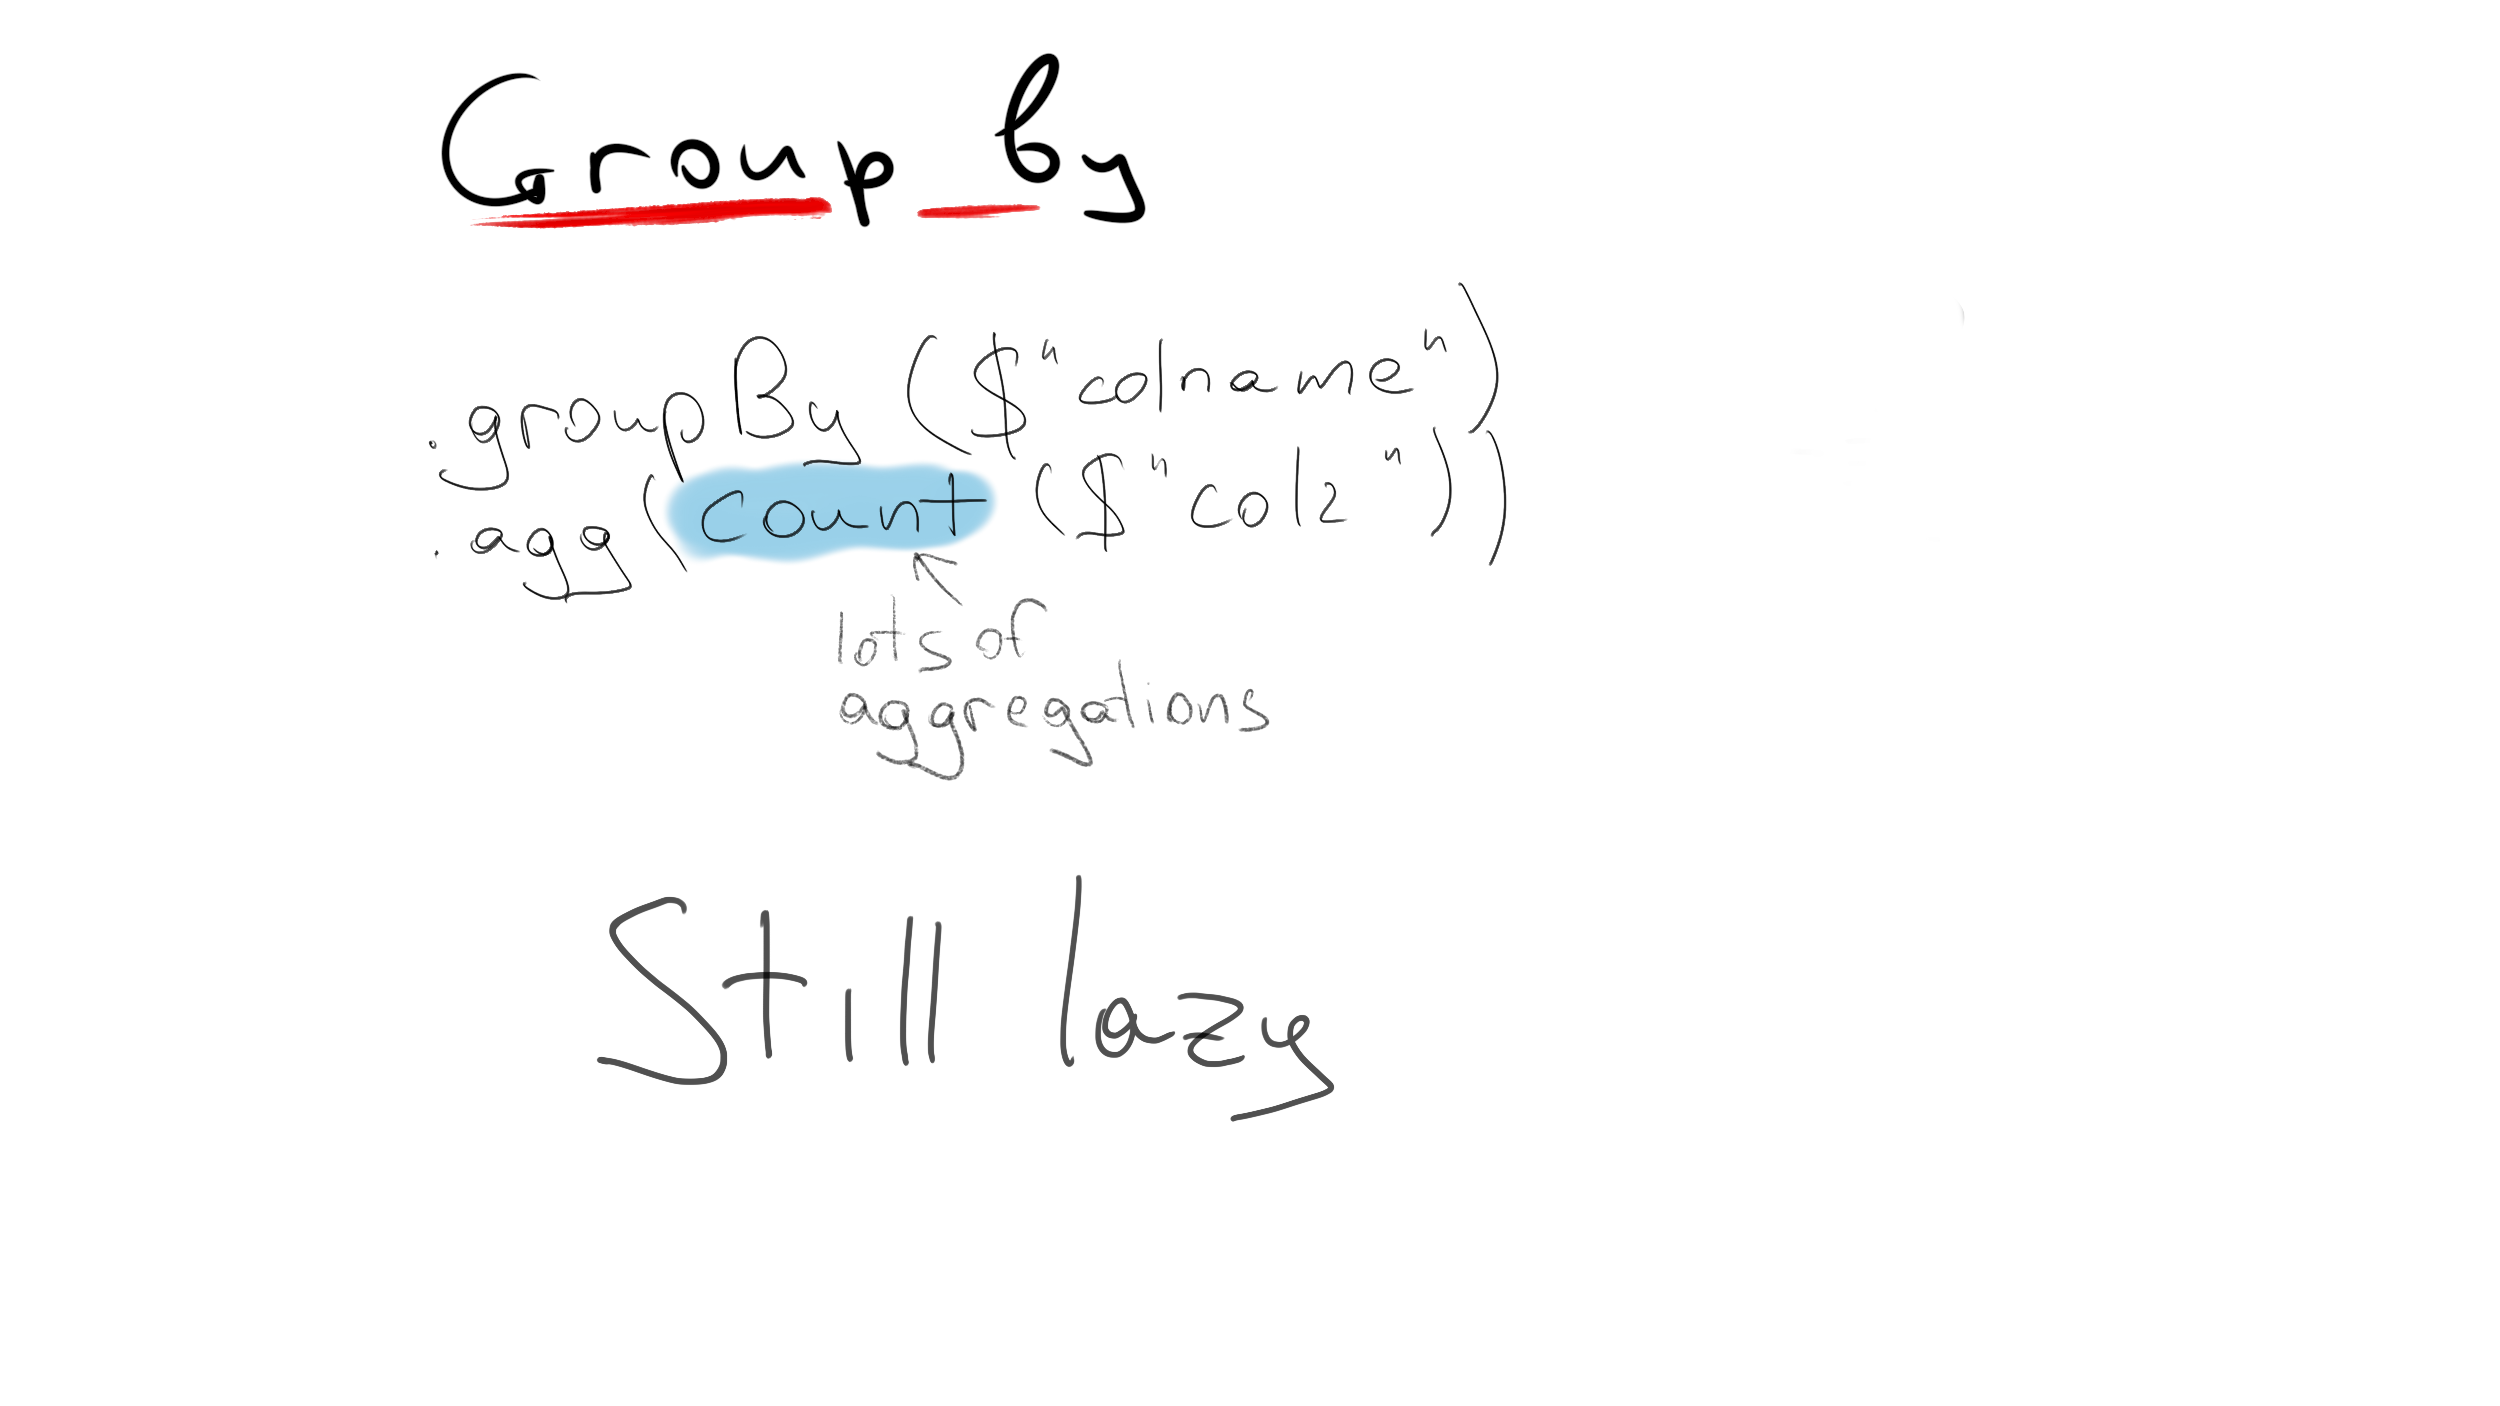 Group by
.groupBy($"colname")
.agg(count($"col2"))
lots of
aggregations
Still lazy